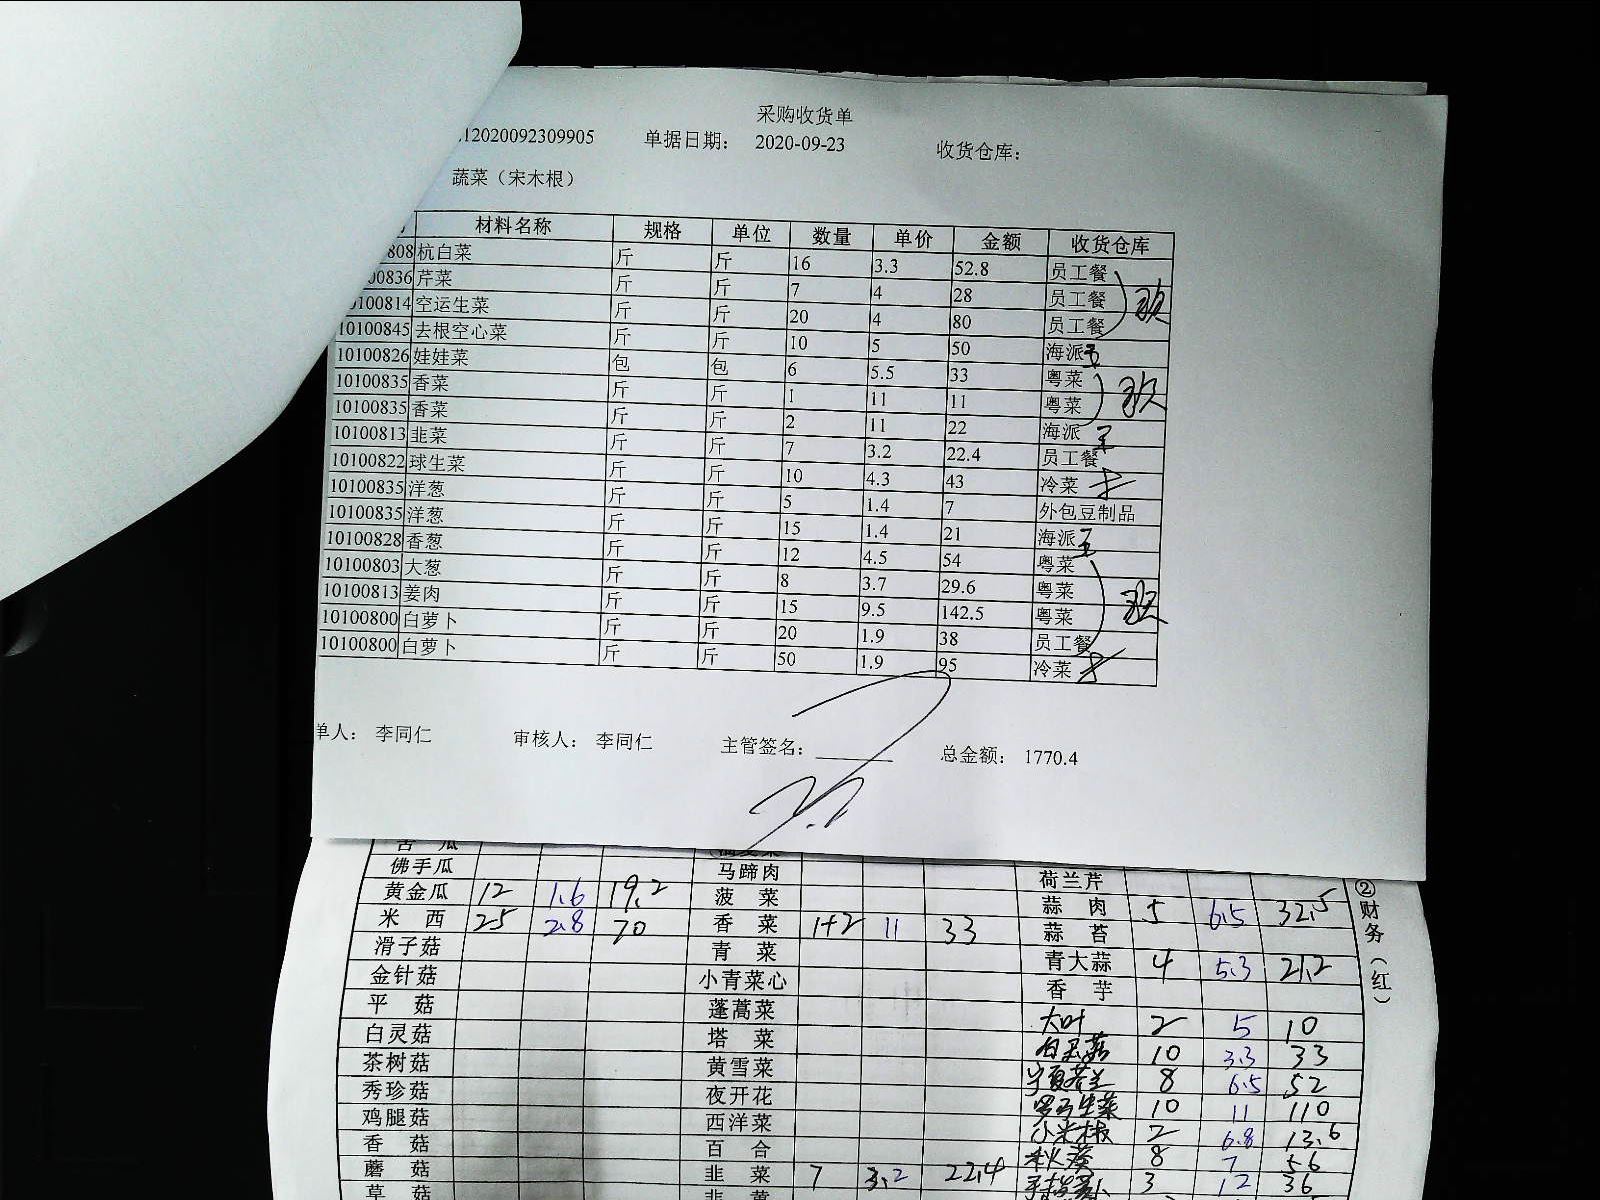 采购收货单
12020092309905 单据日期： 2020-09-23 收货仓库：
蔬菜（宋木根）
材料名称 规格 单位 数量 单价 金额 收货仓库
808 杭白菜 斤 斤 16 3.3 52.8 员工餐
00836 芹菜 斤 斤 7 4 28 员工餐
0100814 空运生菜 斤 斤 20 4 80 员工餐
10100845 去根空心菜 斤 斤 10 5 50 海派
10100826 娃娃菜 包 包 6 5.5 33 粤菜
10100835 香菜 斤 斤 1 11 11 粤菜
10100835 香菜 斤 斤 2 11 22 海派
10100813 韭菜 斤 斤 7 3.2 22.4 员工餐
10100822 球生菜 斤 斤 10 4.3 43 冷菜
10100835 洋葱 斤 斤 5 1.4 7 外包豆制品
10100835 洋葱 斤 斤 15 1.4 21 海派
10100828 香葱 斤 斤 12 4.5 54 粤菜
10100803 大葱 斤 斤 8 3.7 29.6 粤菜
10100813 姜肉 斤 斤 15 9.5 142.5 粤菜
10100800 白萝卜 斤 斤 20 1.9 38 员工餐
10100800 白萝卜 斤 斤 50 1.9 95 冷菜
单人： 李同仁 审核人： 李同仁 主管签名： 总金额： 1770.4
苦 瓜
佛手瓜 马蹄肉 荷兰芹
黄金瓜 12 1.6 19.2 菠 菜 蒜 肉 5 6.5 32.5
米 西 25 2.8 70 香 菜 1+2 11 33 蒜 苔
滑子菇 青 菜 青大蒜 4 5.3 21.2
金针菇 小青菜心 香 芋
平 菇 蓬蒿菜 大叶 2 5 10
白灵菇 塔 菜 白玉菇 10 3.3 33
茶树菇 黄雪菜 8 6.5 52
秀珍菇 夜开花 罗马生菜 10 11 110
鸡腿菇 西洋菜 小米椒 2 6.8 13.6
香 菇 百 合 秋葵 8 7 56
蘑 菇 韭 菜 7 3.2 22.4 3 12 36
草 菇 韭 黄
②财务（红）